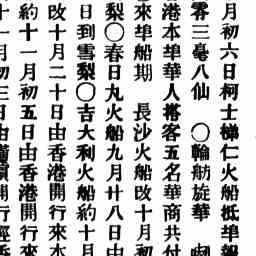 月初六日柯士梯仁火船抵埠報
零三毫八仙　○輪舫旋華
港本埠華人搭客五名華商共付
來埠船期　長沙火船改十月初
梨○春日丸火船九月廿八日由
日到雪梨○吉大利火船約十月
改十月二十日由香港開行來本
約十一月初五日由香港開行來
十一月初三日由橫濱開行經香